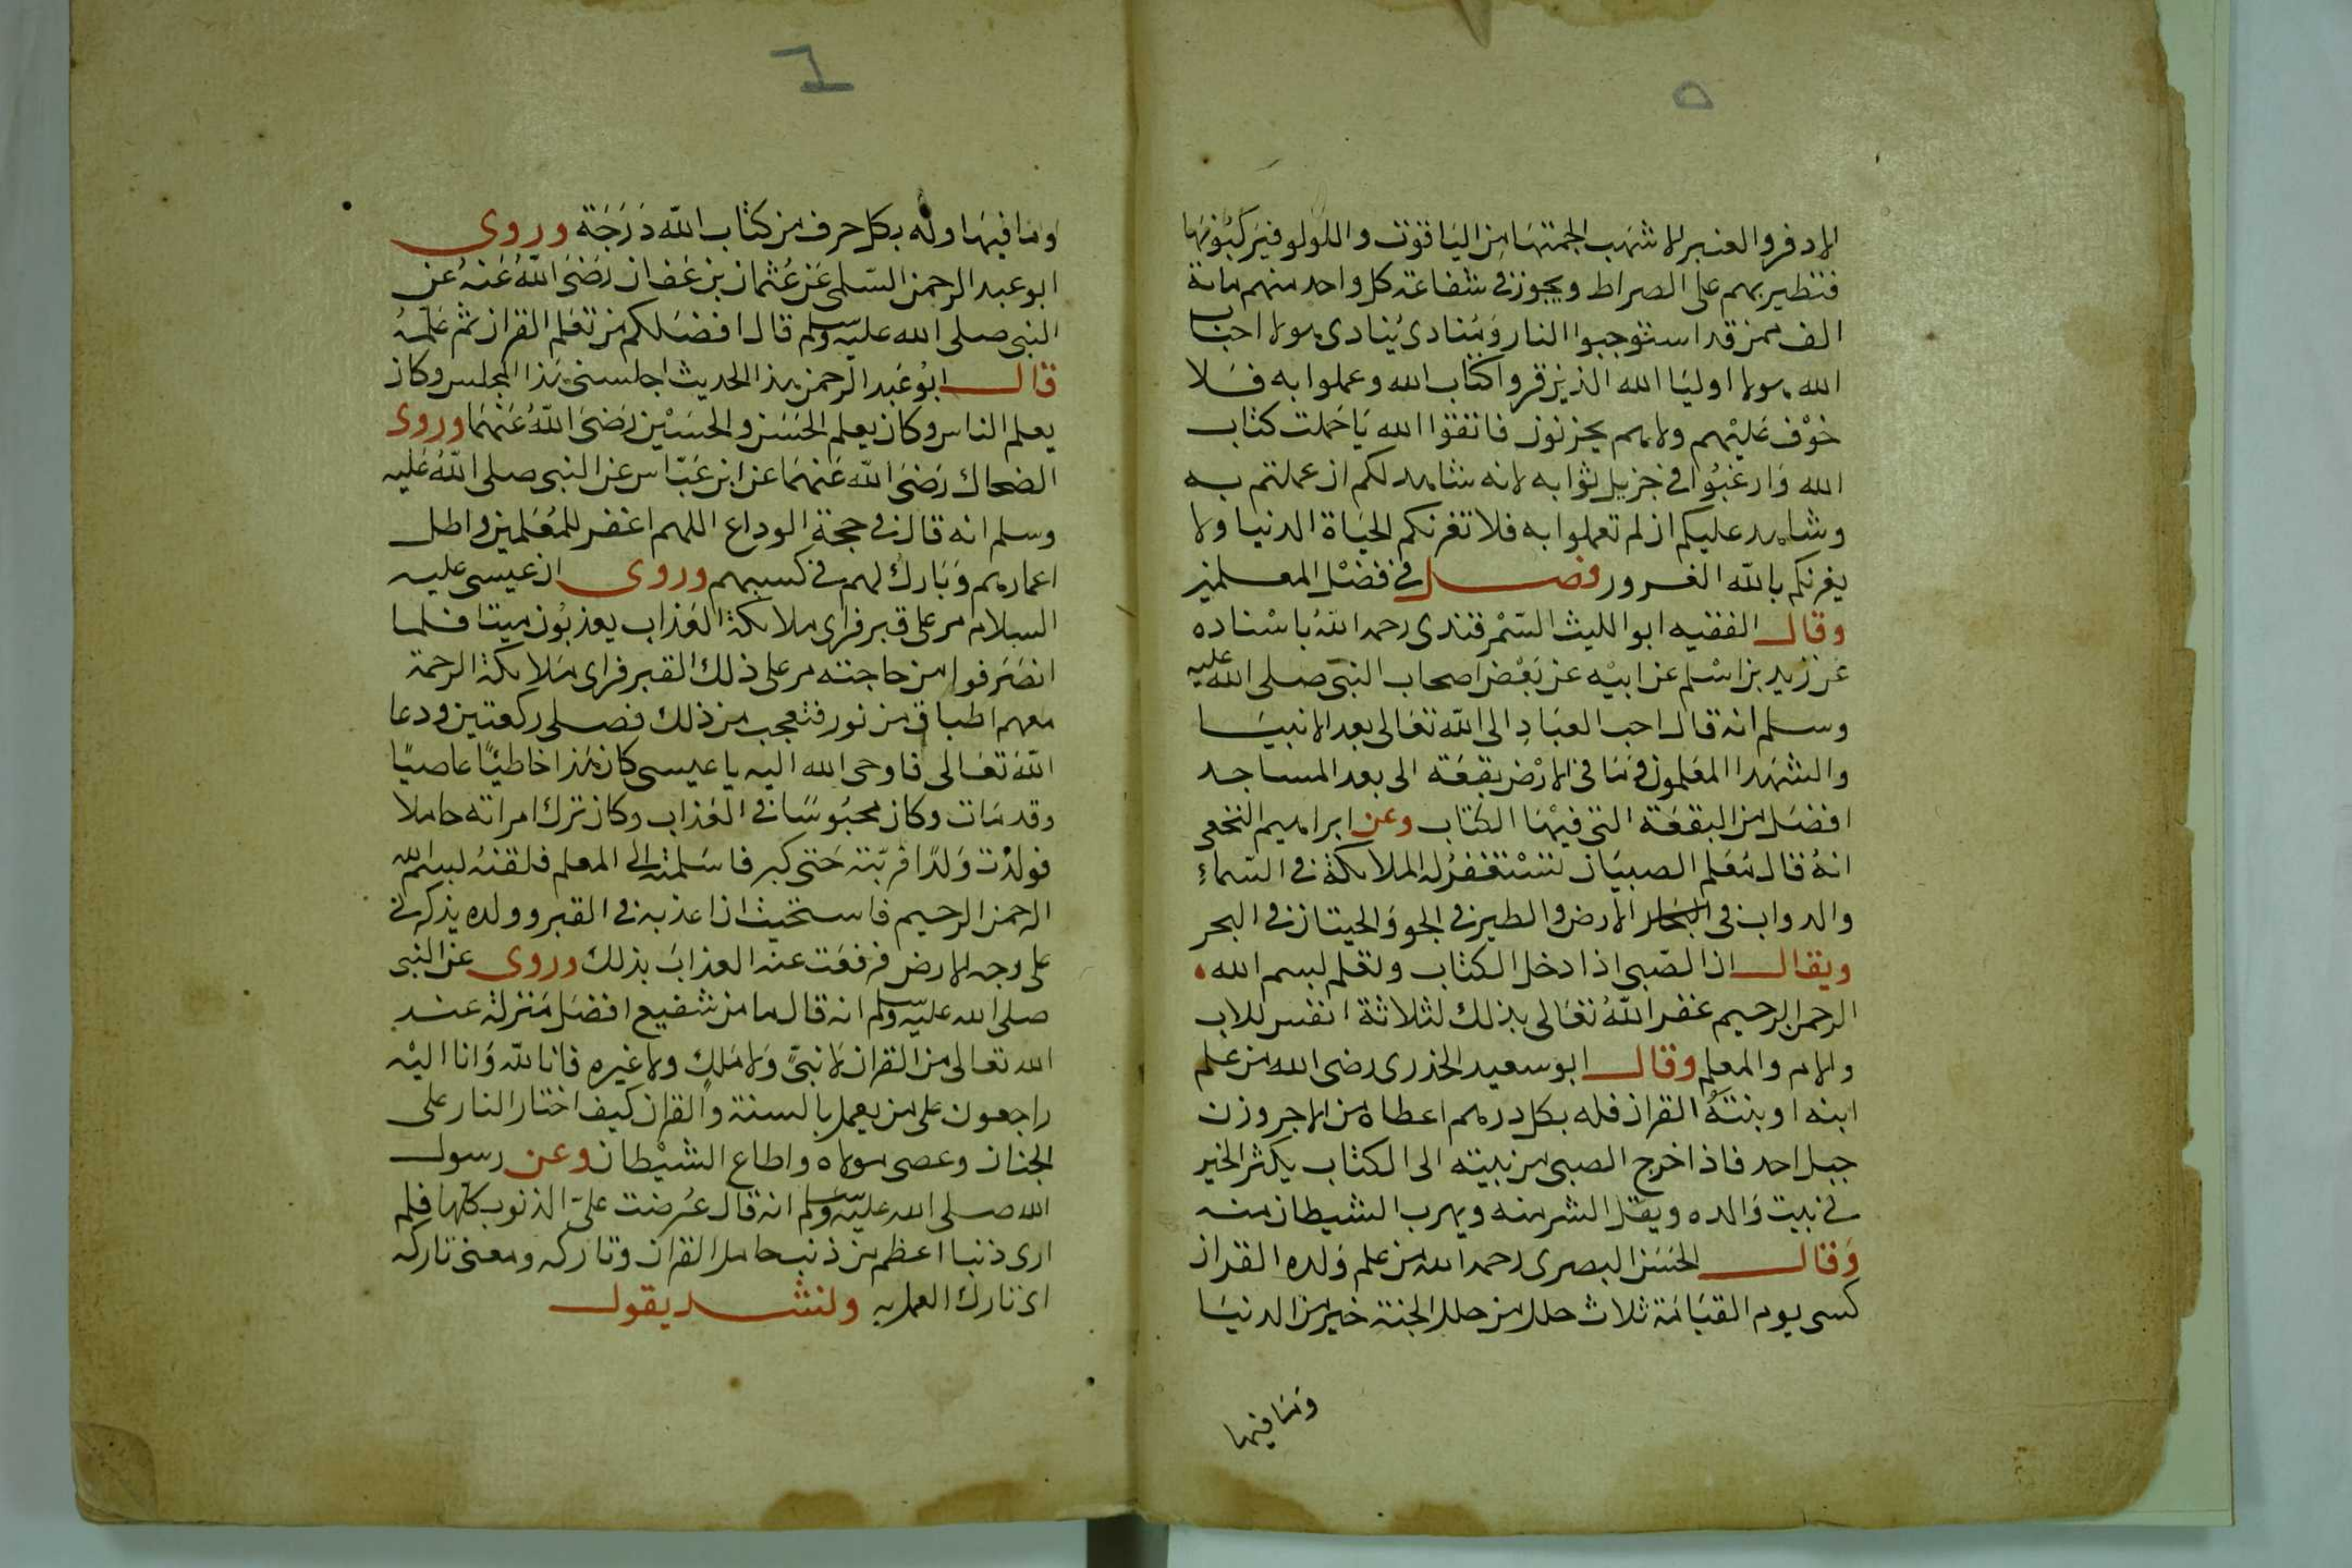 ٥
الادفر والعنبر الاشهب الجمتها من الياقوت واللولو فيركبونها
فتطير بهم على الصراط ويجوز في شفاعة كل واحد منهم ماية
الف ممن قد استوجبوا النار ومنادى ينادى هولا احباب
الله هولا اوليا الله الذين قروا كتاب الله وعملوا به فلا
خوف عليهم ولا هم يحزنون فاتقوا الله يا حملت كتاب
الله وارغبوا في جزيل ثوابه لانه شاهد لكم ان عملتم به
وشاهد عليكم ان لم تعملوا به فلا تغرنكم الحياة الدنيا ولا
يغرنكم بالله الغرور فصل في فضل المعلمين
وقال الفقيه ابو الليث السمرقندى رحمه الله باسناده
عن زيد بن اسلم عن ابيه عن بعض اصحاب النبى صلى الله عليه
وسلم انه قال احب العباد الى الله تعالى بعد الانبيا
والشهدا المعلمون وما في الارض بقعة الى بعد المساجد
افضل من البقعة التى فيها الكتاب وعن ابراهيم النخعى
انه قال معلم الصبيان تستغفر له الملائكة في السماء
والدواب في البحار الارض والطير في الجو والحيتان في البحر
ويقال ان الصبى اذا دخل الكتاب وتعلم بسم الله
الرحمن الرحيم غفر الله تعالى بذلك لثلاثة انفس للاب
والام والمعلم وقال ابو سعيد الخدرى رضى الله من علم
ابنه او بنته القران فله بكل درهم اعطاه من الاجر وزن
جبل احد فاذا خرج الصبى من بيته الى الكتاب يكثر الخير
في بيت والده ويقل الشر منه ويهرب الشيطان منه
وقال الحسن البصرى رحمه الله من علم ولده القران
كسى يوم القيامة ثلاث حلل من حلل الجنة خير من الدنيا
وما فيها
٦
وما فيها وله بكل حرف من كتاب الله درجة وروى
ابو عبد الرحمن السلمى عن عثمان بن عفان رضى الله عنه عن
النبى صلى الله عليه وسلم قال افضلكم من تعلم القران ثم علمه
قال ابو عبد الرحمن هذا الحديث اجلسنى هذا المجلس وكان
يعلم الناس وكان يعلم الحسن والحسين رضى الله عنهما وروى
الضحاك رضى الله عنهما عن ابن عباس عن النبى صلى الله عليه
وسلم انه قال في حجة الوداع اللهم اغفر للمعلمين واطل
اعمارهم وبارك لهم في كسبهم وروى ان عيسى عليه
السلام مر على قبر فراى ملائكة العذاب يعذبون ميتا فلما
انصرفوا من حاجته مر على ذلك القبر فراى ملائكة الرحمة
معهم اطباق من نور فتعجب من ذلك فصلى ركعتين ودعا
الله تعالى فاوحى الله اليه يا عيسى كان هذا خاطئا عاصيا
وقد مات وكان محبوسا في العذاب وكان ترك امراته حاملا
فولدت ولدا فربته حتى كبر فاسلمته الى المعلم فلقنه بسم الله
الرحمن الرحيم فاستحيت ان اعذبه في القبر وولده يذكرنى
على وجه الارض فرفعت عنه العذاب بذلك وروى عن النبى
صلى الله عليه وسلم انه قال ما من شفيع افضل منزلة عند
الله تعالى من القران لا نبى ولا ملك ولا غيره فانا لله وانا اليه
راجعون على من يعمل بالسنة والقران كيف اختار النار على
الجنان وعصى مولاه واطاع الشيطان وعن رسول
الله صلى الله عليه وسلم انه قال عرضت على الذنوب كلها فلم
ارى ذنبا اعظم من ذنب حامل القران وتاركه ومعنى تاركه
اى تارك العمل به ولنشد يقول